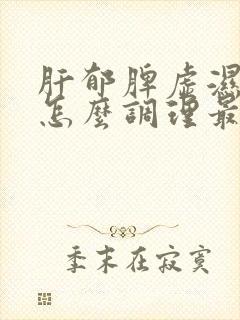 肝郁脾虚濕
怎麼調理最
季末在寂寞